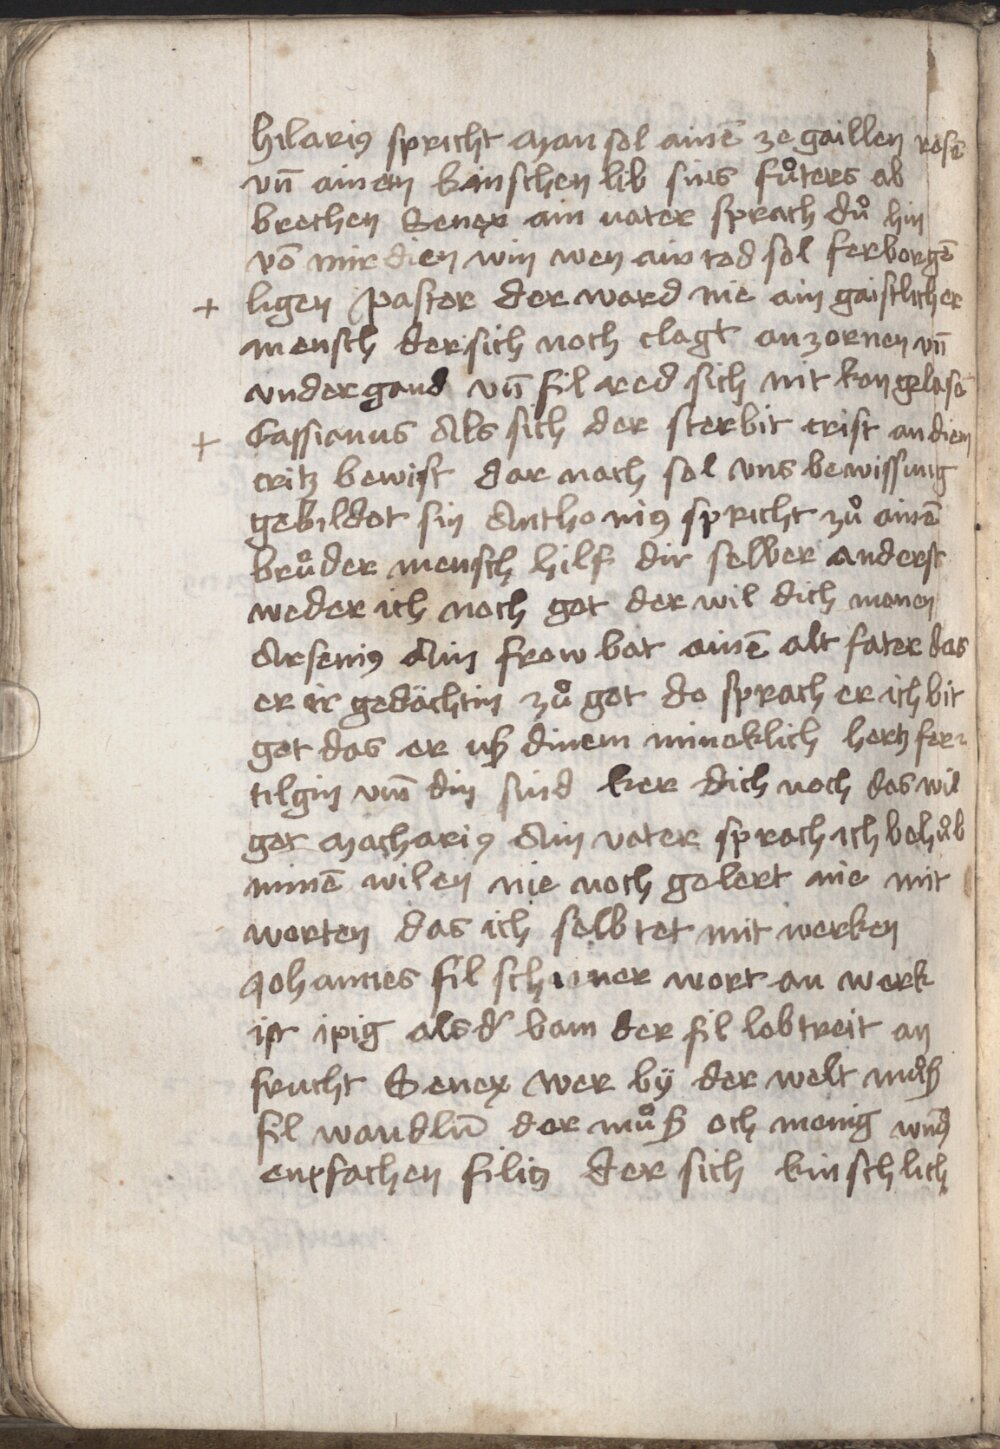 hilariꝰ spricht man sol ainē ze gaillen rosē
vn̄ ainem kinschen lib sins fůters ab
brechen Senex ain vater sprach dů hin
vō mir dien win wen ain tod sol ferborgē
+ ligen pastor der ward nie ain gaistlicher
mensch der sich noch clagt an zornen vn̄
vnder gand vn̄ fil red sich nit kon gelasē
+ Cassianus Als sich der sterbit crist an dien
critz bewist dar nach sol vns bewissung
gebildot sin Anthoniꝰ spricht zů ainē
brůder mensch hilf dir selber anderst
weder ich noch got der wil dich monen
Arseniꝰ Ain frow bat ainē alt fater das
er ir gedächtin zů got do sprach er ich bit
got das er uß dinem mineklich hertz fer
tilgin vnn̄ din sind ker dich noch das wil
got Machariꝰ Ain vater sprach ich behůb
minē wilen nie noch gelert nie mit
worten das ich selb tet mit werken
Johannes fil schinner wort an werk
ist ipig als d' bam der fil lob treit an
frucht Senex wer by der welt můß
fil wandlū der můß och menig wnd
enpfachen filitz der sich kinschlich